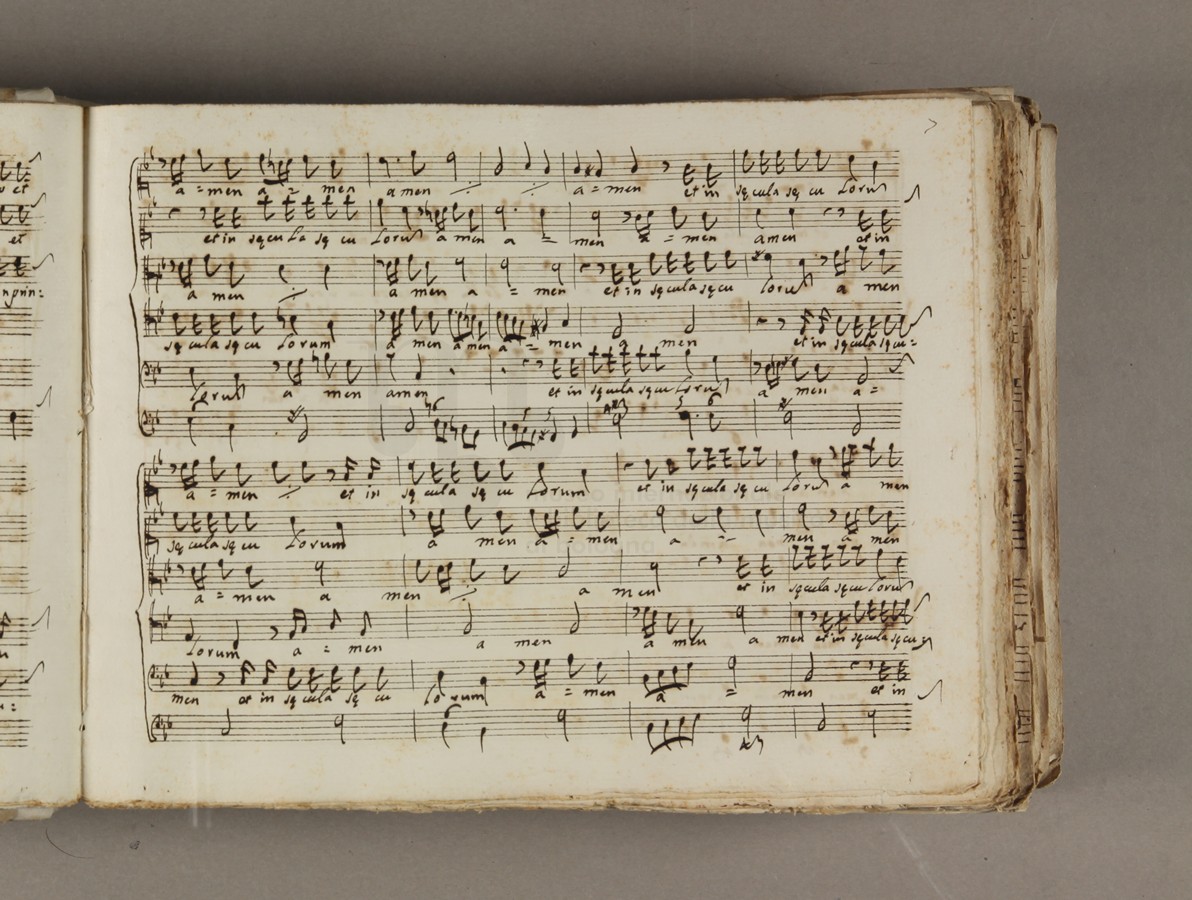 et
a = men a = men amen ⁒ ⁒ a = men et in sęcula sę cu loruʒ
et
et in sęcu la sę cu loruʒ a men a = men a = men amen et in
nprin:
a men ⁒ a men a = men et in sęcula sęcu loruʒ a men
sę cula sę cu lorum a men a men a = men a men et in sęcula sęcu=
loruʒ a men amen et in sęcula sęcu loruʒ a men a =
a = men ⁒ et in sę cula sę cu lorum et in sęcula sę cu loruʒ a men
sę cula sę cu lorum a men a = men a = men a men
a = men a men ⁒ a men et in sęcula sęcu loruʒ
lorum a = men a men a men a men et in sęcula sęcu=
men et in sę cula sę cu lo rum a = men a = men et in